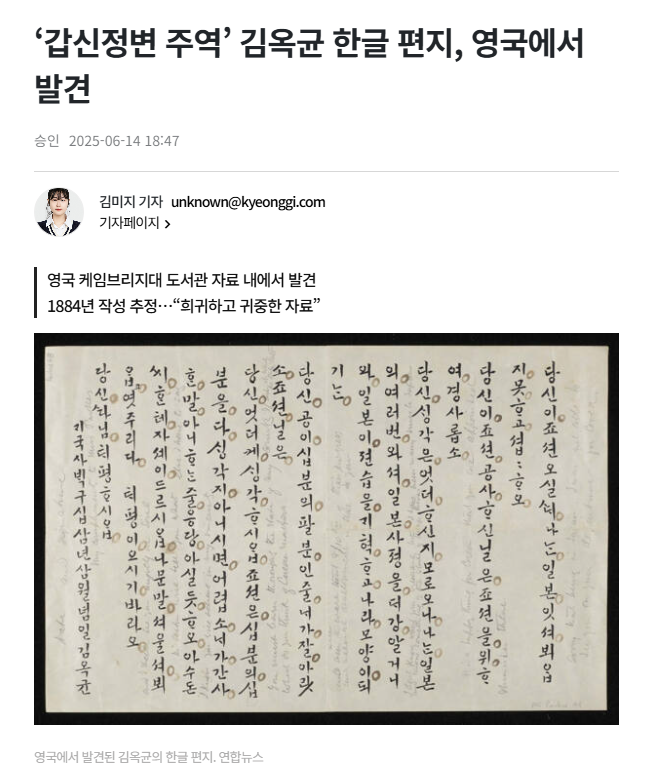 ‘갑신정변 주역’ 김옥균 한글 편지, 영국에서
발견
승인 2025-06-14 18:47
김미지 기자 unknown@kyeonggi.com
기자페이지 >
영국 케임브리지대 도서관 자료 내에서 발견
1884년 작성 추정…“희귀하고 귀중한 자료”
당신이죠션오실ᄯᅢ나는일본잇셔뵈옵
지못ᄒᆞ고셥〻ᄒᆞ오
당신이죠션공사ᄒᆞ신닐은죠션을위ᄒᆞ
여경사롭소
당신싱각은엇더ᄒᆞ신지모로오나나는일본
의여러번와셔일본사졍을더강알거니
와일본이 기혁ᄒᆞ고나라모양이되
기는
당신공이십분의팔분인줄ᄂᆡ가잘아라
소죠션닐은
당신엇더케싱각ᄒᆞ시옵죠션은십분의십
분을다싱각지아니시면어렵소ᄂᆡ가간사
ᄒᆞᆫ말아니ᄒᆞ는줄응당아실듯ᄒᆞ오아수돈
씨ᄒᆞᆫ테자셰이드르시옵나문말셔울셔뵈
옵엿주리다 ᄐᆡ평이오시기바라오
ᄐᆡ평ᄒᆞ시옵
ᄀᆡ국사빅구십삼년삼월념일김옥균
영국에서 발견된 김옥균의 한글 편지. 연합뉴스